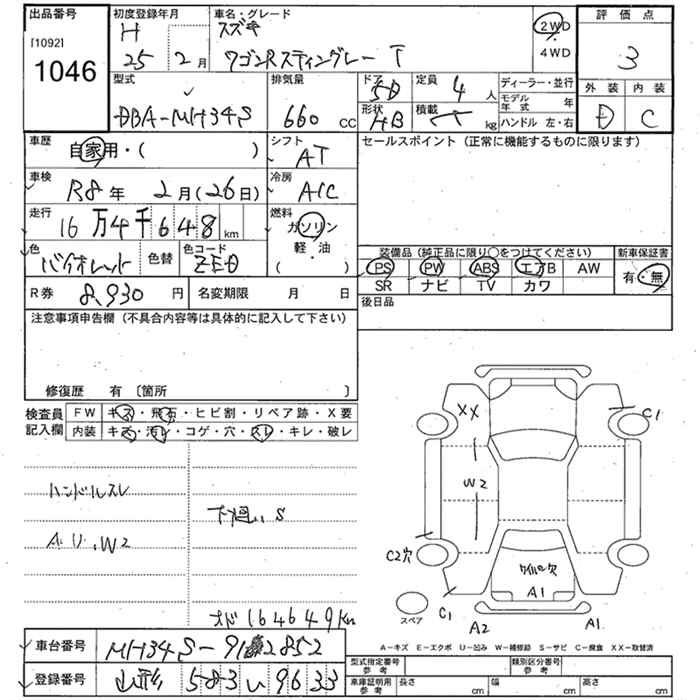 出品番号
[1092]
1046
初度登録年月
H
25 2月
車名・グレード
スズキ
ワゴンRスティングレー T
2WD
4WD
評価点
3
外装 内装
D C
型式
DBA-MH34S
排気量
660 cc
ドア
5D
形状
HB
定員
4 人
積載
kg
ディーラー・並行
モデル年式 年
ハンドル 左・右
車歴
自家用・( )
シフト
AT
セールスポイント(正常に機能するものに限ります)
車検
R8年 2月(26日)
冷房
A/C
走行
16万4千648km
燃料
ガソリン
軽・油
( )
色
バイオレット
色替
色コード
ZED
装備品(純正品に限り○をつけてください)
PS PW ABS エアB AW
SR ナビ TV カワ
新車保証書
有・無
R券
8,930円
名変期限 月 日
後日品
注意事項申告欄(不具合内容等は具体的に記入して下さい)
修復歴 有 〔箇所 〕
検査員
記入欄
FW キズ・飛石・ヒビ割・リペア跡・X要
内装 キズ・汚レ・コゲ・穴・スレ・キレ・破レ
ハンドルスレ
A.U.W2
下廻りS
オド164649Km
XX
C1
W2
C2穴
ワイパー穴
A1
スペア
C1
A2
A1
A-キズ E-エクボ U-凹み W-補修跡 S-サビ C-腐食 XX-取替済
車台番号
MH34S-91
2852
登録番号
山形 583 い 9633
型式指定番号
参考
類別区分番号
参考
車庫証明用
参考
長さ cm 幅 cm 高さ cm